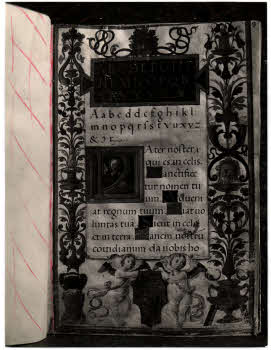 Aabcddefghikl
mnopqrſstvuxyz
&
Ater noster
qui es in celis
anctifice
tur nomen tu
um dveni
at regnum tuum iat uo
luntas tua icut in celo
et in terra anem nostrū
cotidianum da nobis ho